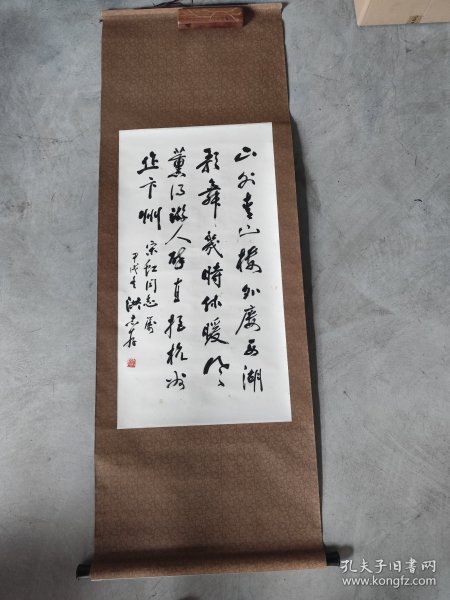 山外青山樓外廔西湖
歌舞幾時休暖風
薰得遊人醉直把杭州
作卞州
宋紅同志屬
甲戌 洪志
孔夫子旧书网
www.kongfz.com